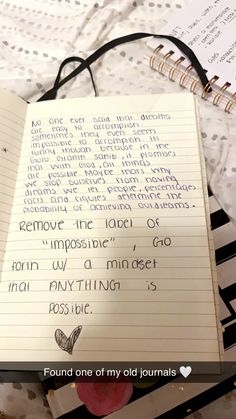 No one ever said that dreams
are easy to accomplish
sometimes they even seem
impossible to accomplish. It's
funny though because in the
Guru Granth Sahib, it promises
that with God, all things
are possible. Maybe that's why
we stop ourselves from having
dreams. We let people, percentages,
facts and figures determine the
probability of achieving our dreams.
Remove the label of
"impossible", Go
forth w/ a mindset
that ANYTHING is
possible.
Found one of my old journals